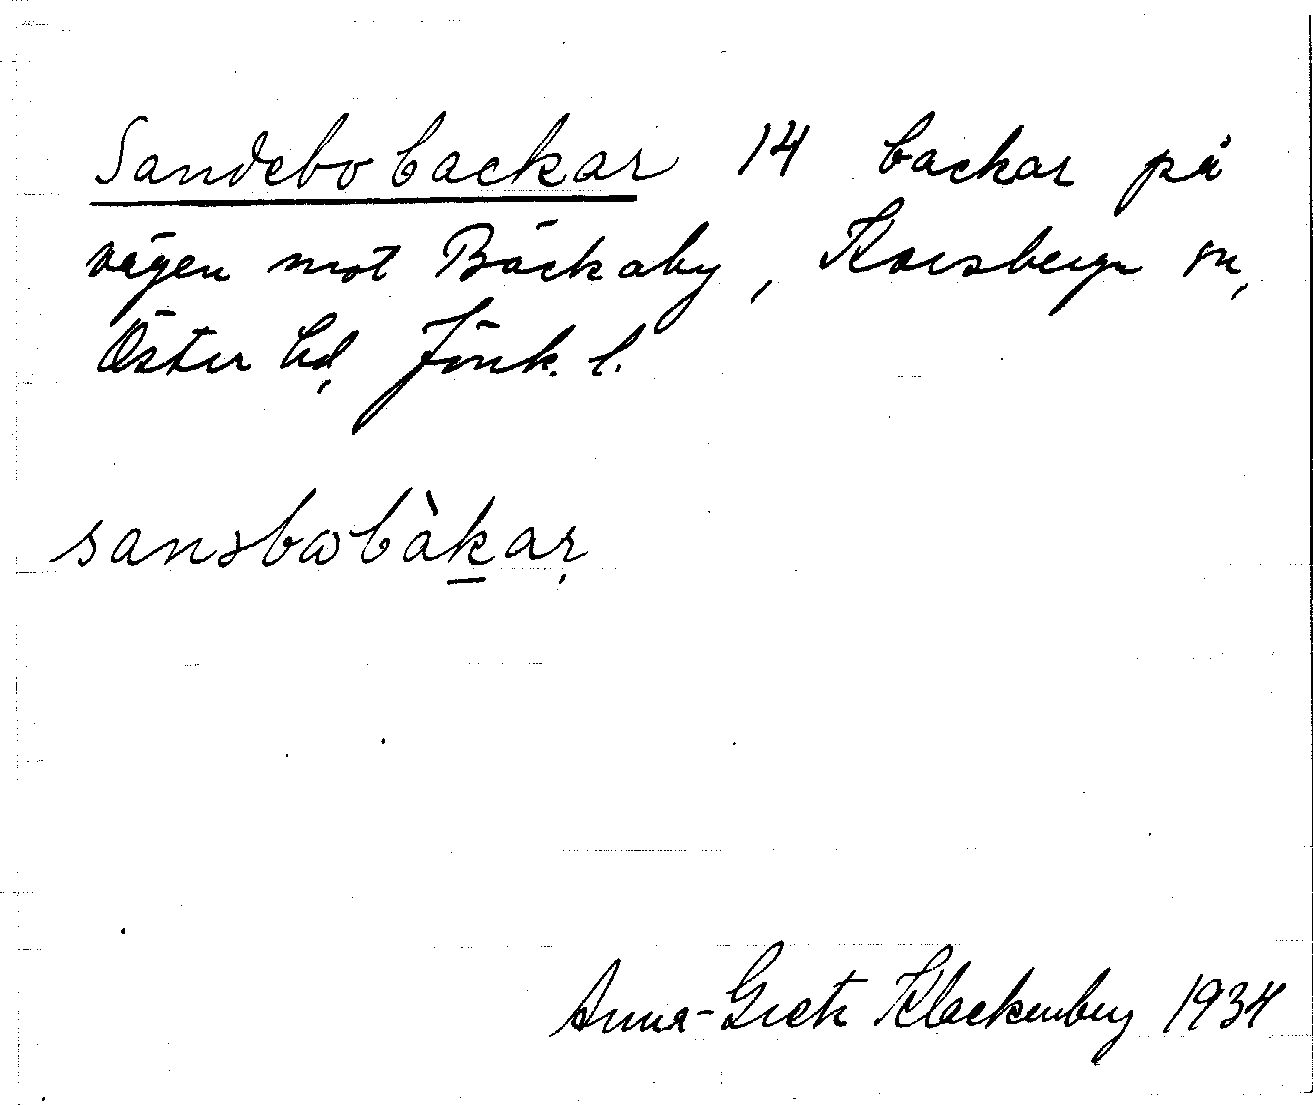 Sandebo backar 14 backar på
vägen mot Bäckaby, Korsberga sn,
Öster hd, Jönk. l.
sanəbωbàk̲ar̩
Anna-Greta Klackenberg 1934